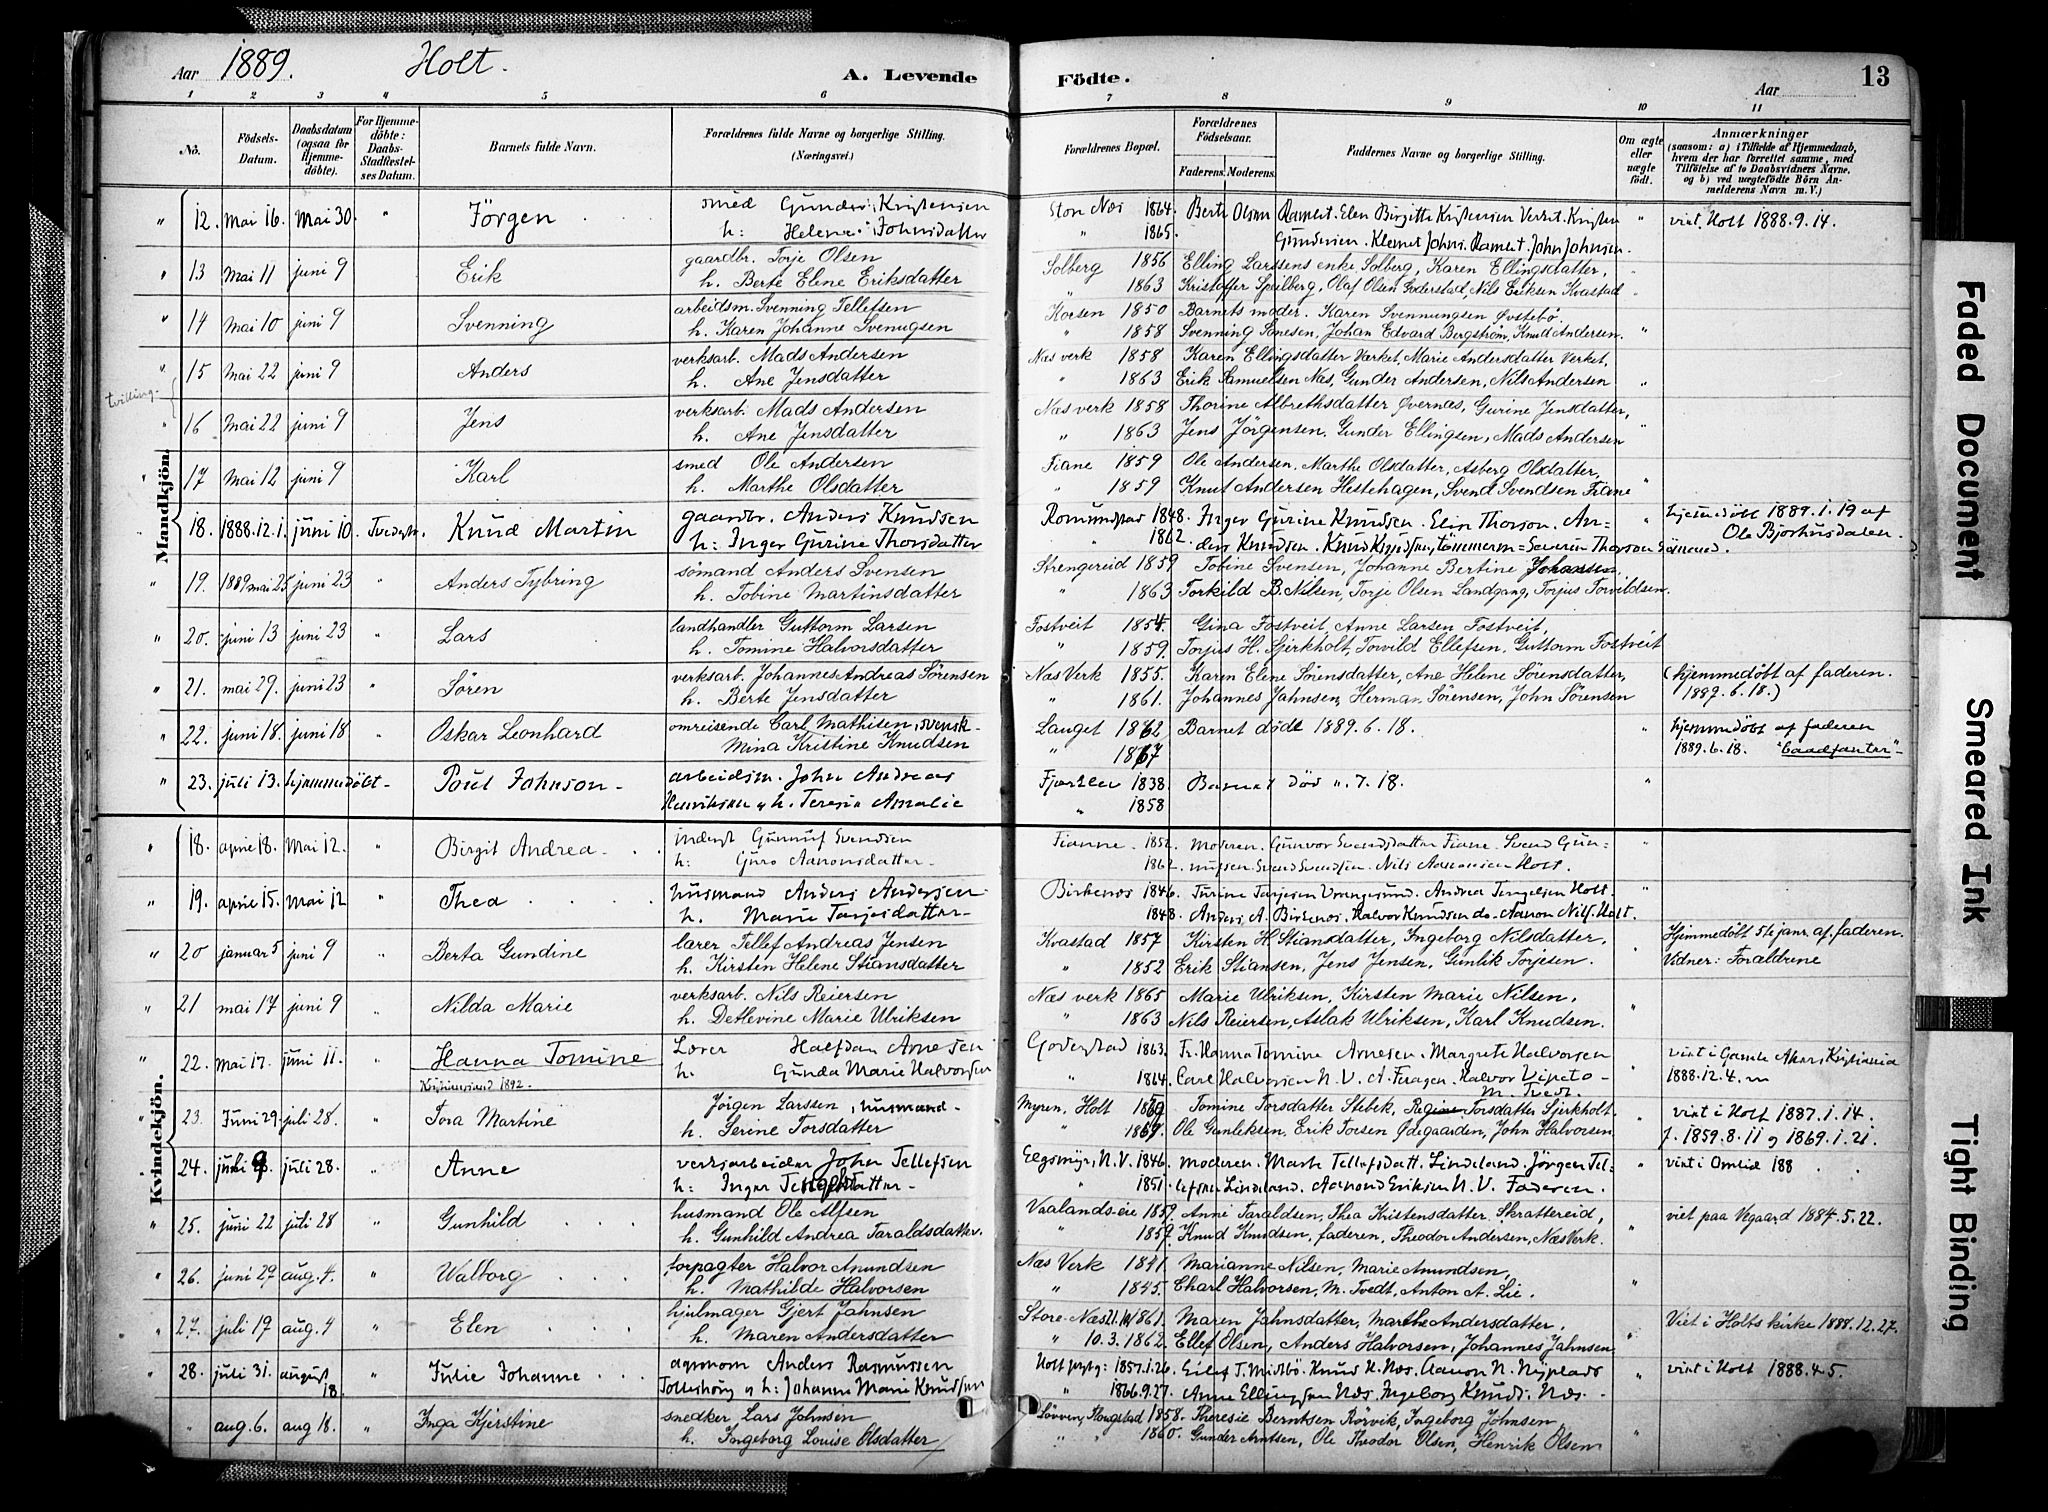 Aar 1889. Holt. A. Levende Födte. Aar 13
1 2 3 4 5 6 7 8 9 10 11
No. Födsels-Datum. Daabsdatum (ogsaa for Hjemme-döbte). For Hjemme-döbte: Daabs-Stadfæstel-ses Datum. Barnets fulde Navn. Forældrenes fulde Navne og borgerlige Stilling. (Næringsvei.) Forældrenes Bopæl. Forældrenes Födselsaar. Faderens. Moderens. Faddernes Navne og borgerlige Stilling. Om ægte eller uægte födt. Anmærkninger (saasom: a) i Tilfælde af Hjemmedaab, hvem der har forrettet samme, med Tilföielse af to Daabsvidners Navne, og b) ved uægtefödte Börn An-melderens Navn m. V.)
Mandkjön.
" 12. Mai 16. Mai 30. " Jörgen smed Gunder Kristensen Ston Næs 1864. Berte Olsen Elen Birgitte Kristensen Verket. Kristen " viet. Holt 1888.9.14.
h: Helene Johnsdatter " 1865. Gundersen. Klemet Johns. John Johnsen.
" 13 Mai 11 juni 9 Erik gaardbr. Torje Olsen Solberg 1856 Elling Larssens enke Solberg, Karen Ellingsdatter,
h. Berte Elene Eriksdatter " 1863 Kristoffer Spilberg, Olaf Olsen Nils Eriksen Kvastad
" 14 Mai 10 juni 9 Svenning arbeidsm. Svenning Tellefsen Korsen 1850 Barnets moder. Karen Svennungsen Övstebö.
h. Karen Johanne " 1858 Svenning Johan Edvard Bergström, Knud Andersen. "
tvilling.
" 15 Mai 22 juni 9 Anders verksarb. Mads Andersen Næs verk 1858 Karen Ellingsdatter Værket, Marie Andersdatter Verket,
h. Ane Jensdatter " 1863 Erik Samuelsen Næs, Gunder Andersen, Nils Andersen "
" 16 Mai 22 juni 9 Jens verksarb. Mads Andersen Næs verk 1858 Thorine Albrethsdatter Övernæs, Gurine Jensdatter,
h. Ane Jensdatter " 1863 Jens Jörgensen, Gunder Ellingsen, Mads Andersen "
" 17 Mai 12 juni 9 Karl smed Ole Andersen Fiane 1859 Ole Andersen. Marthe Olsdatter, Asberg Olsdatter,
h. Marthe Olsdatter " 1859 Knut Andersen Hestehagen, Svend Svendsen Fiane "
18. 1888.12.1. juni 10. Tvedestr. Knud Martin gaardbr. Anders Knudsen Romundstad 1848. Inger Gurine Knudsen. Elin Thorson. An= " hjemmedøbt 1889.1.19 af
h: Inger Gurine Thorsdatter " 1862. ders Knudsen. Knud Knudsen, tömmerm= Severin Thorson Sömand. Ole Bjorhusdalen.
" 19. 1889 mai 25 juni 23 " Anders Tybring sömand Anders Svensen Strengereid 1859 Tobine Svensen, Johanne Bertine Johansen,
h. Tobine Martinsdatter " 1863 Torkild B. Nilsen, Torje Olsen Landgang, Torjus Torvildsen.
" 20. juni 13 juni 23 " Lars landhandler Guttorm Larsen Fostveit 1854. Gina Fostveit, Anne Larsen Fostveit,
h. Tomine Halvorsdatter " 1859. Torjus H. Sjerkholt, Torvild Ellefsen, Guttorm Fostveit
" 21. mai 29. juni 23 " Sören verksarb. Johannes Andreas Sörensen Næs Verk 1855. Karen Elene Sörensdatter, Ane Helene Sörensdatter, (hjemmedøbt af faderen.
h. Berte Jensdatter " 1861. Johannes Jahnsen, Herman Sörensen, John Sörensen 1889.6.18.)
" 22. juni 18. juni 18 " Oskar Leonhard omreisende Carl Mathisen, svensk Langet 1862 Barnet døde 1889.6.18. " hjemmedøbt af faderen
Mina Kristine Knudsen " 1867 1889.6.18.
" 23. juli 13. hjemmedøbt - Poul Johnson - arbeidsm. John Andreas 1838 Barnet död ". 7. 18. "
h. Teresia Amalie " 1858
Kvindekjön.
" 18. april 18. Mai 12. " Birgit Andrea inderst Svendsen Fianne 1852. moderen. Gunvor Svendsdatter Fiane. Svend Gun= "
h: Guro Aanonsdatter 1862. Svend Svendsen. Nils Aanonsen Holt.
" 19. april 15. Mai 12 " Thea husmand Anders Andersen Birkenes 1846. Turine Tarjesen Vrangesund. Andrea Holt. "
h. Marie Tarjesdatter 1848. Anders A. Birkenes. Halvor Knudsen do. Aanon Nils. Holt.
" 20 januar 5 juni 9 " Berta Gundine lærer Tellef Andreas Jensen Kvastad 1857 Kirsten H. Stiansdatter, Ingeborg Nilsdatter, " Hjemmedøbt 5te janr. af faderen.
h. Kirsten Helene Stiansdatter " 1852 Erik Stiansen, Jens Jensen, Gunlik Torjesen. Vidner: Forældrene
" 21 mai 17 juni 9 " Nilda Marie verksarb. Nils Reiersen Næs verk 1865 Marie Ulriksen, Kirsten Marie Nilsen,
h. Detlevine Marie Ulriksen " 1863 Nils Reiersen, Aslak Ulriksen, Karl Knudsen. "
" 22. Mai 17. juni 11. " Hanna Tomine Lærer Halfdan Arnesen Goderstad 1863. Fr. Hanna Tomine Arnesen. Margrete Halvorsen viet i Gamle Aker, Kristiania
Kristiansand 1892. h. Gunda Marie Halvorsen " 1864. Carl Halvorsen N. V. A. Halvor 1888.12.4.
M. Tvedt.
" 23. Juni 29. juli 28. " Tora Martine Jörgen Larssen, husmand. Myren, Holt 1869 Tomine Torsdatter Stebek, Regine Torsdatter Sjerkholt. " viet i Holt 1887.1.14.
h. Serine Torsdatter " 1869. Ole Gunleksen, Erik Toesen Ödegaarden, John Halvorsen f. 1859.8.11 og 1869.1.21.
24. juli 9 juli 28. " Anne verksarbeider John Tellefsen Elgsmyr, N. V. 1846. moderen. Marte Tellefsdatt. Lindeland. Jörgen Tel= " viet i Omlid 188
h: Inger " 1851. lefsen Lindeland. Aanond Eriksen N. V. Faderen.
" 25. juni 22 juli 28 " Gunhild husmand Ole Alfsen Vaalands-eie 1859 Anne Taraldsen, Thea Kristensdatter Skrattereid, viet paa Vegaard 1884.5.22.
h. Gunhild Andrea Taraldsdatter. " 1859. Knud Knudsen, faderen, Theodor Andersen, Næs Verk. "
" 26. juni 27 aug. 4. " Walborg forpagter Halvor Amundsen Næs Verk 1841. Marianne Nilsen, Marie Amundsen,
h. Mathilde Halvorsen " 1845. Charl Halvorsen, M. Tvedt, Anton A. Lie. "
" 27. juli 19 aug. 4 " Elen hjulmager Gjert Jahnsen Store-Næs 1861. Maren Jahnsdatter, Marthe Andersdatter, Viet i Holts kirke 1888.12.27.
h. Maren Andersdatter " 10.3.1862. Ellef Olsen, Anders Halvorsen, Johannes Jahnsen "
" 28. juli 31. august 18. " Julie Johanne agronom Anders Rasmussen Holt prgtg: 1857.1.26. Eilef T. Midtbö. Knud H. Næs. Aanon N. " viet i Holt 1888.4.5.
og h: Johanne Marie Knudsen " 1866.9.27. Anne Ellingsen Næs. Ingeborg Knuds. Næs.
" aug. 6. aug 18. " Inga Kjerstine snedker Lars Johnsen 1858. Theresie Berntsen Rörvik, Ingeborg Johnsen
h. Ingeborg Louise Olsdatter " " 1860. Gunder Arntsen, Ole Theodor Olsen, Henrik Olsen "
Faded Document
Smeared Ink
Tight Binding